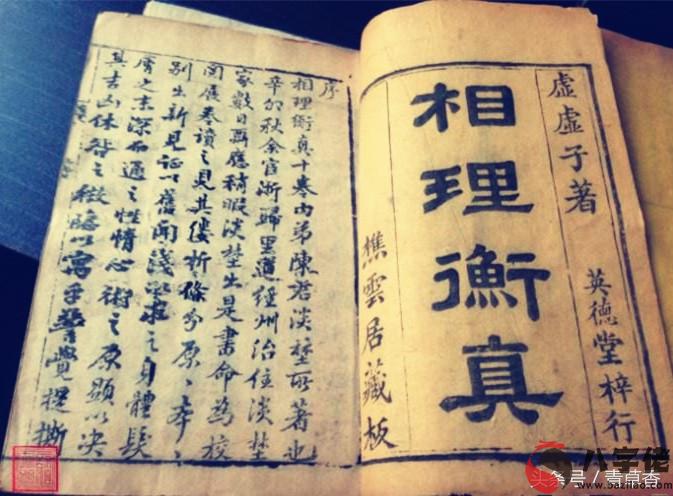 虛虛子著
英德堂梓行
相理衡真
樵雲居藏板
序
相理衡真十卷內弟陳君淡埜所著也
辛卯秋余官浙歸里道經州治住淡埜
家數日酬應稍暇淡埜出是書命為校
閱展卷讀之見其縷析條分原〻本〻
別生新見證以舊聞淺以求之身體髮
膚之末深而通之性情心術之原顯以決
其吉凶休咎之徵隱以寓乎警覺提撕
八字佬
www.bazilao.com
头条号